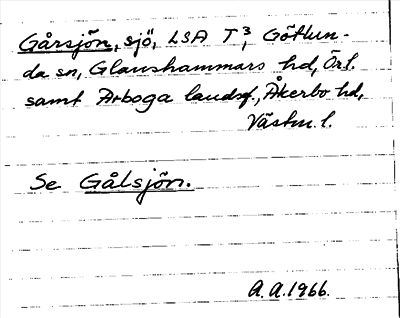 Gårsjön, sjö, LSA T³, Götlun-
da sn, Glanshammars hd, Örl.
samt Arboga landsf., Åkerbo hd,
Västm. l.
Se Gålsjön.
A. A. 1966.